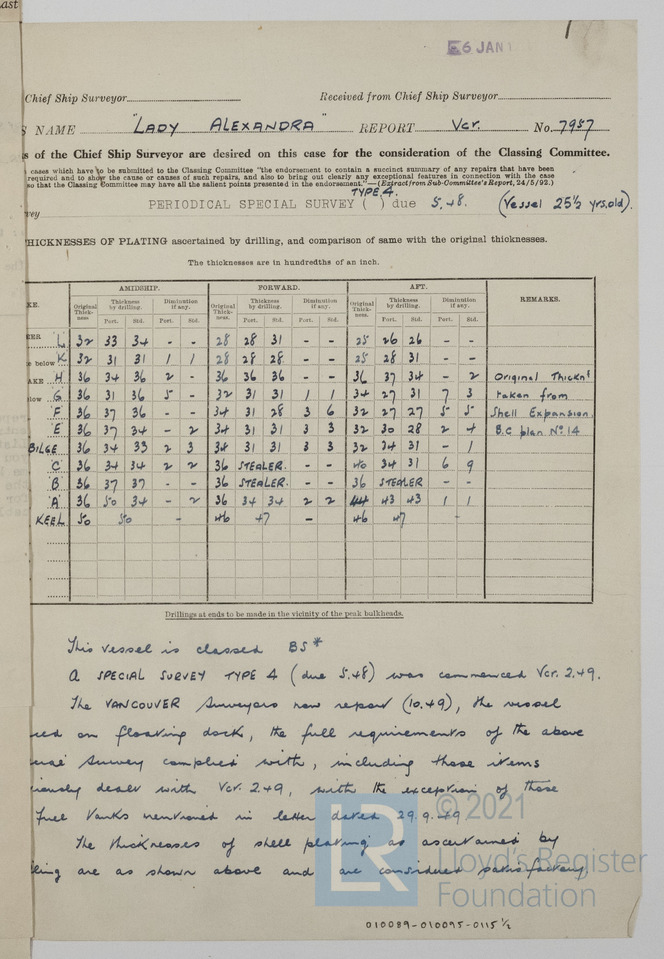 ast
6 JAN
Chief Ship Surveyor
Received from Chief Ship Surveyor
NAME "LADY ALEXANDRA" REPORT Vcr. No. 7957
s of the Chief Ship Surveyor are desired on this case for the consideration of the Classing Committee.
cases which have to be submitted to the Classing Committee "the endorsement to contain a succinct summary of any repairs that have been
required and to show the cause or causes of such repairs, and also to bring out clearly any exceptional features in connection with the case
so that the Classing Committee may have all the salient points presented in the endorsement."—(Extract from Sub-Committee's Report, 24/5/92.)
TYPE 4.
PERIODICAL SPECIAL SURVEY ( ) due 5.48. (Vessel 25½ yrs.old).
vey
HICKNESSES OF PLATING ascertained by drilling, and comparison of same with the original thicknesses.
The thicknesses are in hundredths of an inch.
AMIDSHIP. FORWARD. AFT.
KE. Original Thick- ness. Thickness by drilling. Diminution if any. Original Thick- ness. Thickness by drilling. Diminution if any. Original Thick- ness. Thickness by drilling. Diminution if any. REMARKS.
Port. Std. Port. Std. Port. Std. Port. Std. Port. Std. Port. Std.
ER L 32 33 34 - - 28 28 31 - - 25 26 26 - -
e below K 32 31 31 1 1 28 28 28 - - 25 28 31 - -
AKE H 36 34 36 2 - 36 36 36 - - 36 37 34 - 2 Original Thickns
low G 36 31 36 5 - 32 31 31 1 1 34 27 31 7 3 taken from
F 36 37 36 - - 34 31 28 3 6 32 27 27 5 5 Shell Expansion.
E 36 37 34 - 2 34 31 31 3 3 32 30 28 2 4 B.C plan No. 14
BILGE 36 34 33 2 3 34 31 31 3 3 32 34 31 - 1
'C' 36 34 34 2 2 36 STEALER. - - 40 34 31 6 9
'B' 36 37 37 - - 36 STEALER. - - 36 STEALER - -
'A' 36 50 34 - 2 36 34 34 2 2 44 43 43 1 1
KEEL 50 50 - 46 47 - 46 47 -
Drillings at ends to be made in the vicinity of the peak bulkheads.
This vessel is classed BS*
A SPECIAL SURVEY TYPE 4 (due 5.48) was commenced Vcr. 2.49.
The VANCOUVER Surveyors now report (10.49), the vessel
ed on floating dock, the full requirements of the above
Survey complied with, including those items
iously dealt with Vcr. 2.49, with the exception of those
fuel tanks mentioned in letter dated 29.9.49
The thicknesses of shell plating as ascertained by
ling are as shown above and are considered satisfactory.
LR
© 2021
Lloyd's Register
Foundation
010089-010095-0115½